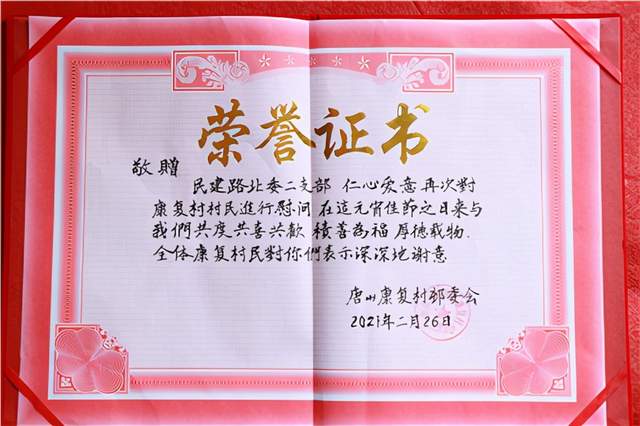 荣誉证书
敬赠
民建路北委二支部 仁心爱意再次對
康复村村民進行慰问 在這元宵佳節之日来与
我們共度共喜共歡 積善為福 厚德载物.
全体康复村民對你們表示深深地谢意
唐山康复村邨委会
2021年二月26日